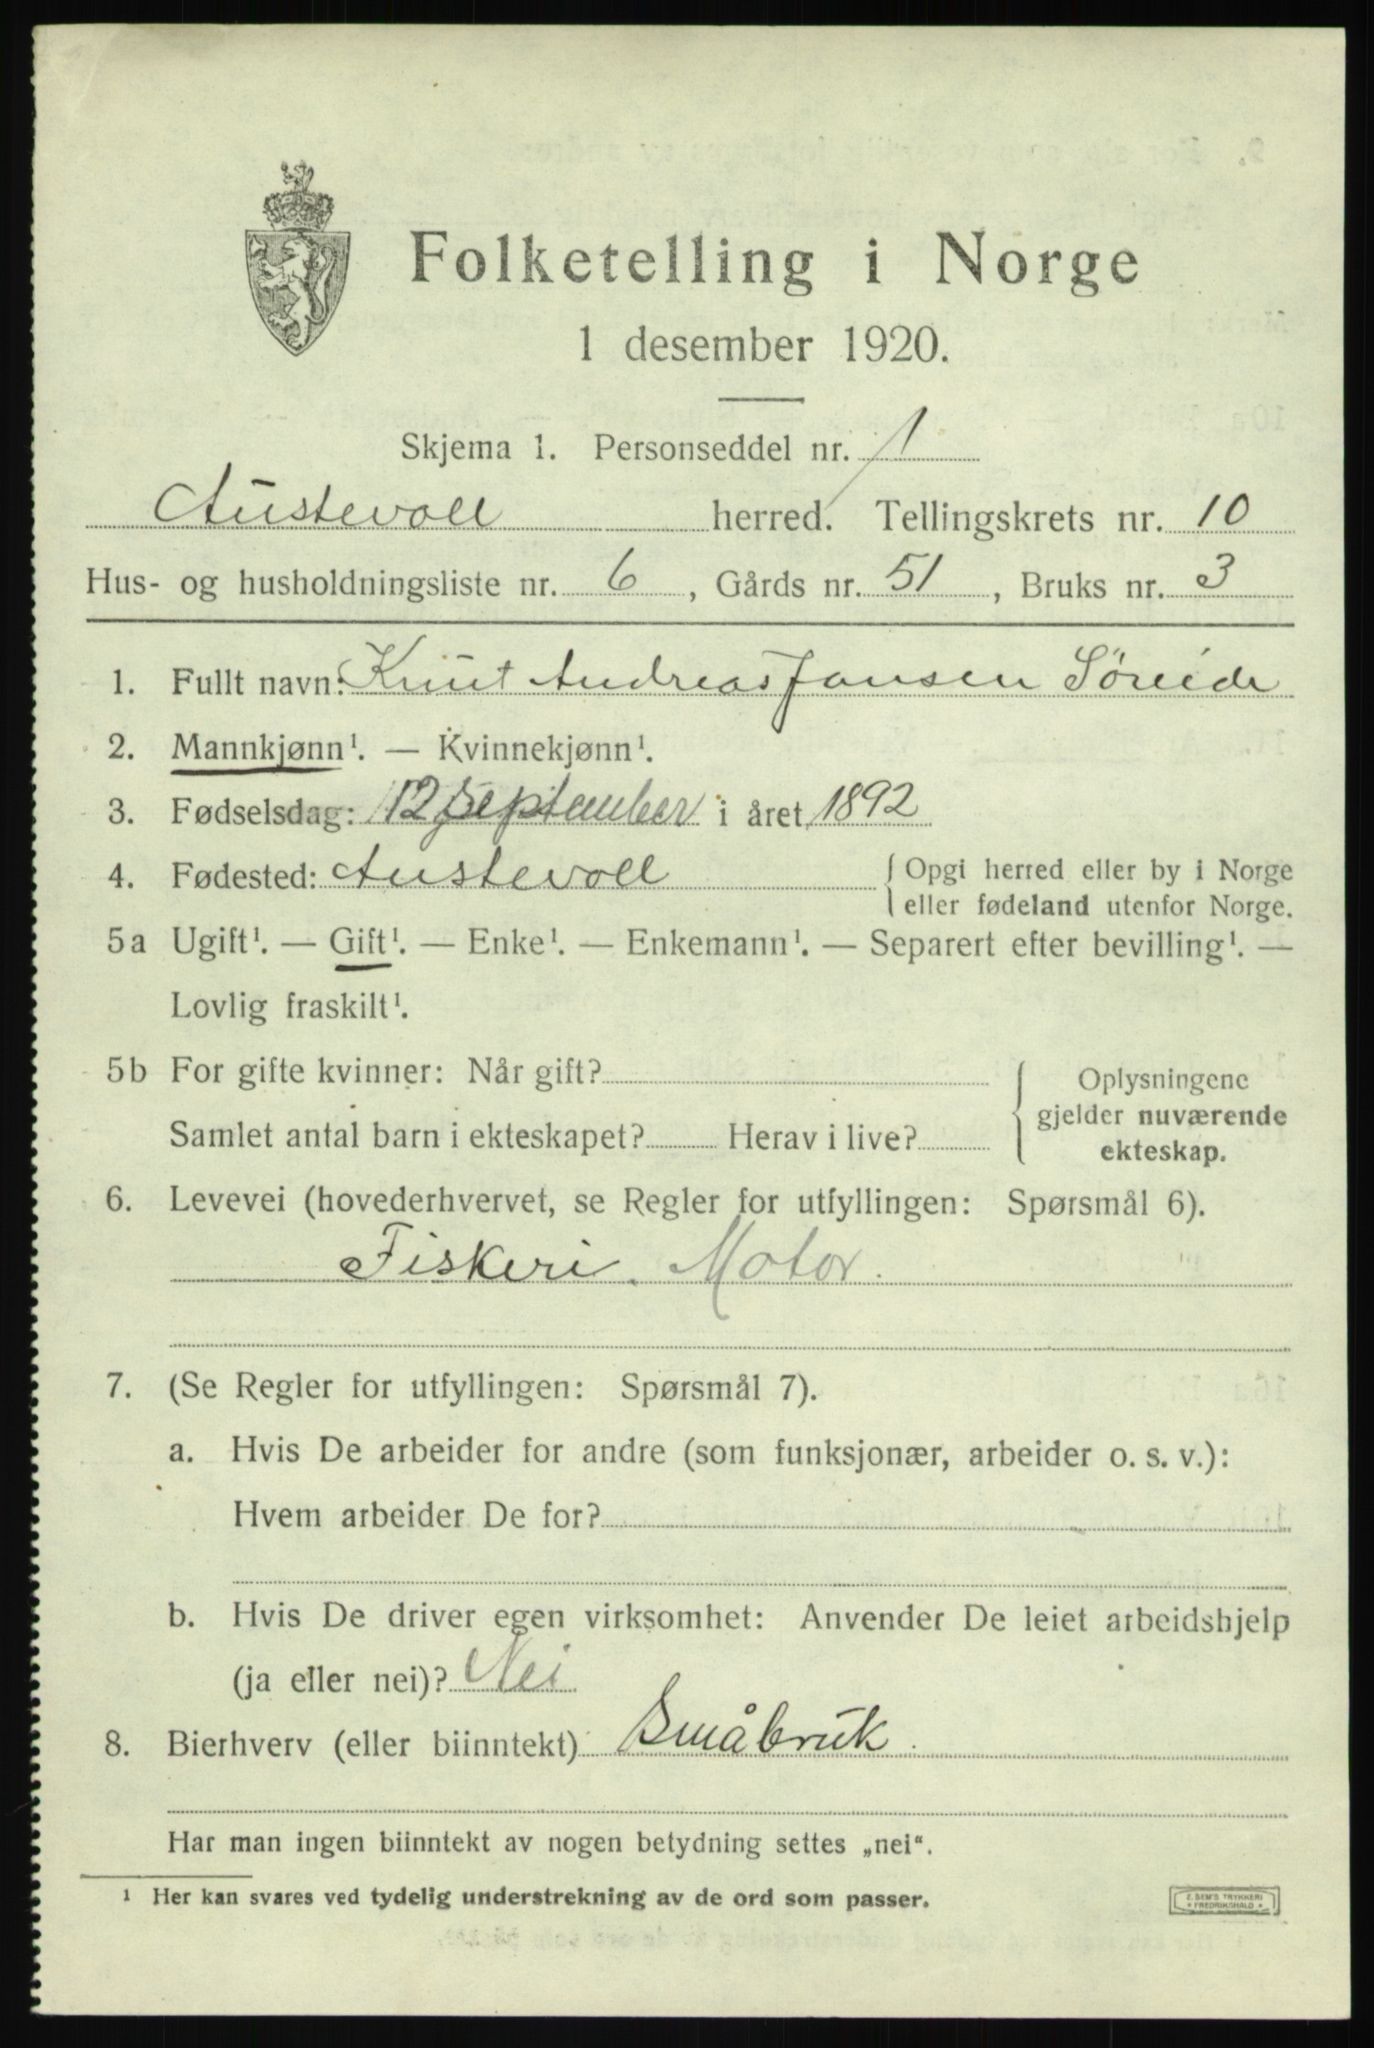 Folketelling i Norge
1 desember 1920.
Skjema 1. Personseddel nr. 1
Austevoll herred. Tellingskrets nr. 10
Hus- og husholdningsliste nr. 6, Gårds nr. 51, Bruks nr. 3
1. Fullt navn: Knut Andreas Jansen Söreide
2. Mannkjønn¹. — Kvinnekjønn¹.
3. Fødselsdag: 12 September i året 1892
4. Fødested: Austevoll { Opgi herred eller by i Norge
eller fødeland utenfor Norge.
5a Ugift¹. — Gift¹. — Enke¹. — Enkemann¹. — Separert efter bevilling¹. —
Lovlig fraskilt¹.
5b For gifte kvinner: Når gift?
Samlet antal barn i ekteskapet? Herav i live?
{ Oplysningene
gjelder nuværende
ekteskap.
6. Levevei (hovederhvervet, se Regler for utfyllingen: Spørsmål 6).
Fiskeri. Motor.
7. (Se Regler for utfyllingen: Spørsmål 7).
a. Hvis De arbeider for andre (som funksjonær, arbeider o. s. v.):
Hvem arbeider De for?
b. Hvis De driver egen virksomhet: Anvender De leiet arbeidshjelp
(ja eller nei)? Nei
8. Bierhverv (eller biinntekt) Småbruk.
Har man ingen biinntekt av nogen betydning settes „nei“.
¹ Her kan svares ved tydelig understrekning av de ord som passer.
E. SEM'S TRYKKERI
* FREDRIKSHALD *